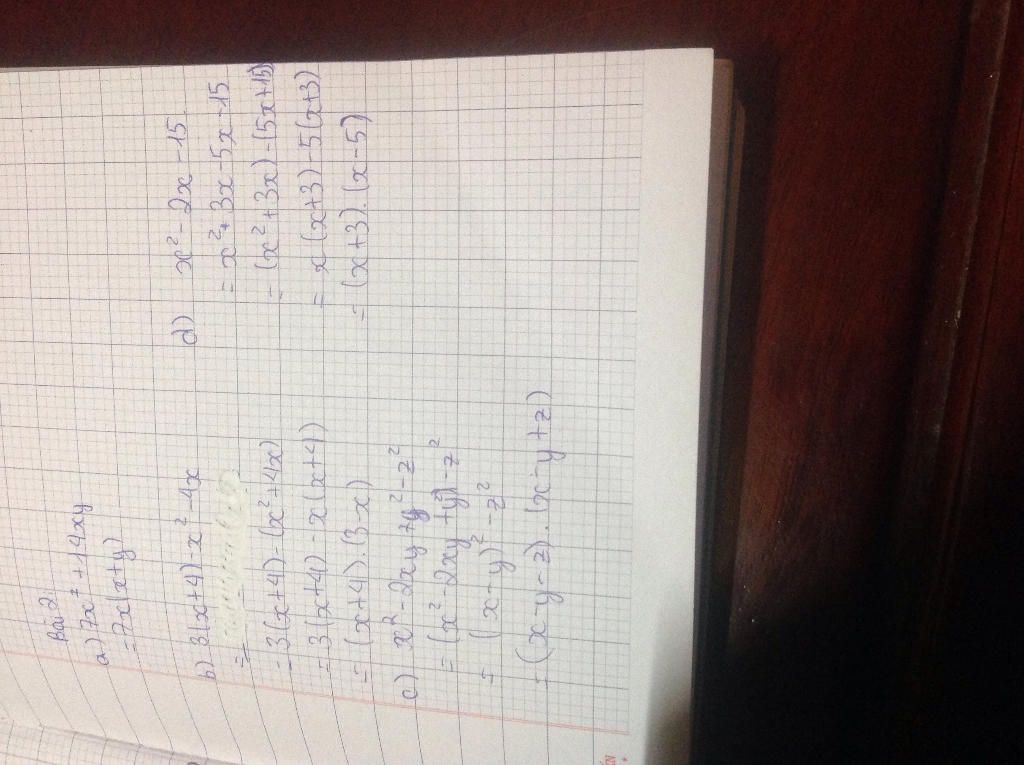 Bài 2
a) 7x² + 14xy
= 7x(x+y)
b) 3(x+4) - x² - 4x
=
= 3(x+4) - (x² + 4x)
= 3(x+4) - x(x+4)
= (x+4).(3-x)
c) x² - 2xy + y² - z²
= (x² - 2xy + y²) - z²
= (x - y)² - z²
= (x-y-z).(x-y+z)
d) x² - 2x - 15
= x² + 3x - 5x - 15
= (x² + 3x) - (5x+15)
= x(x+3) - 5(x+3)
= (x+3).(x-5)